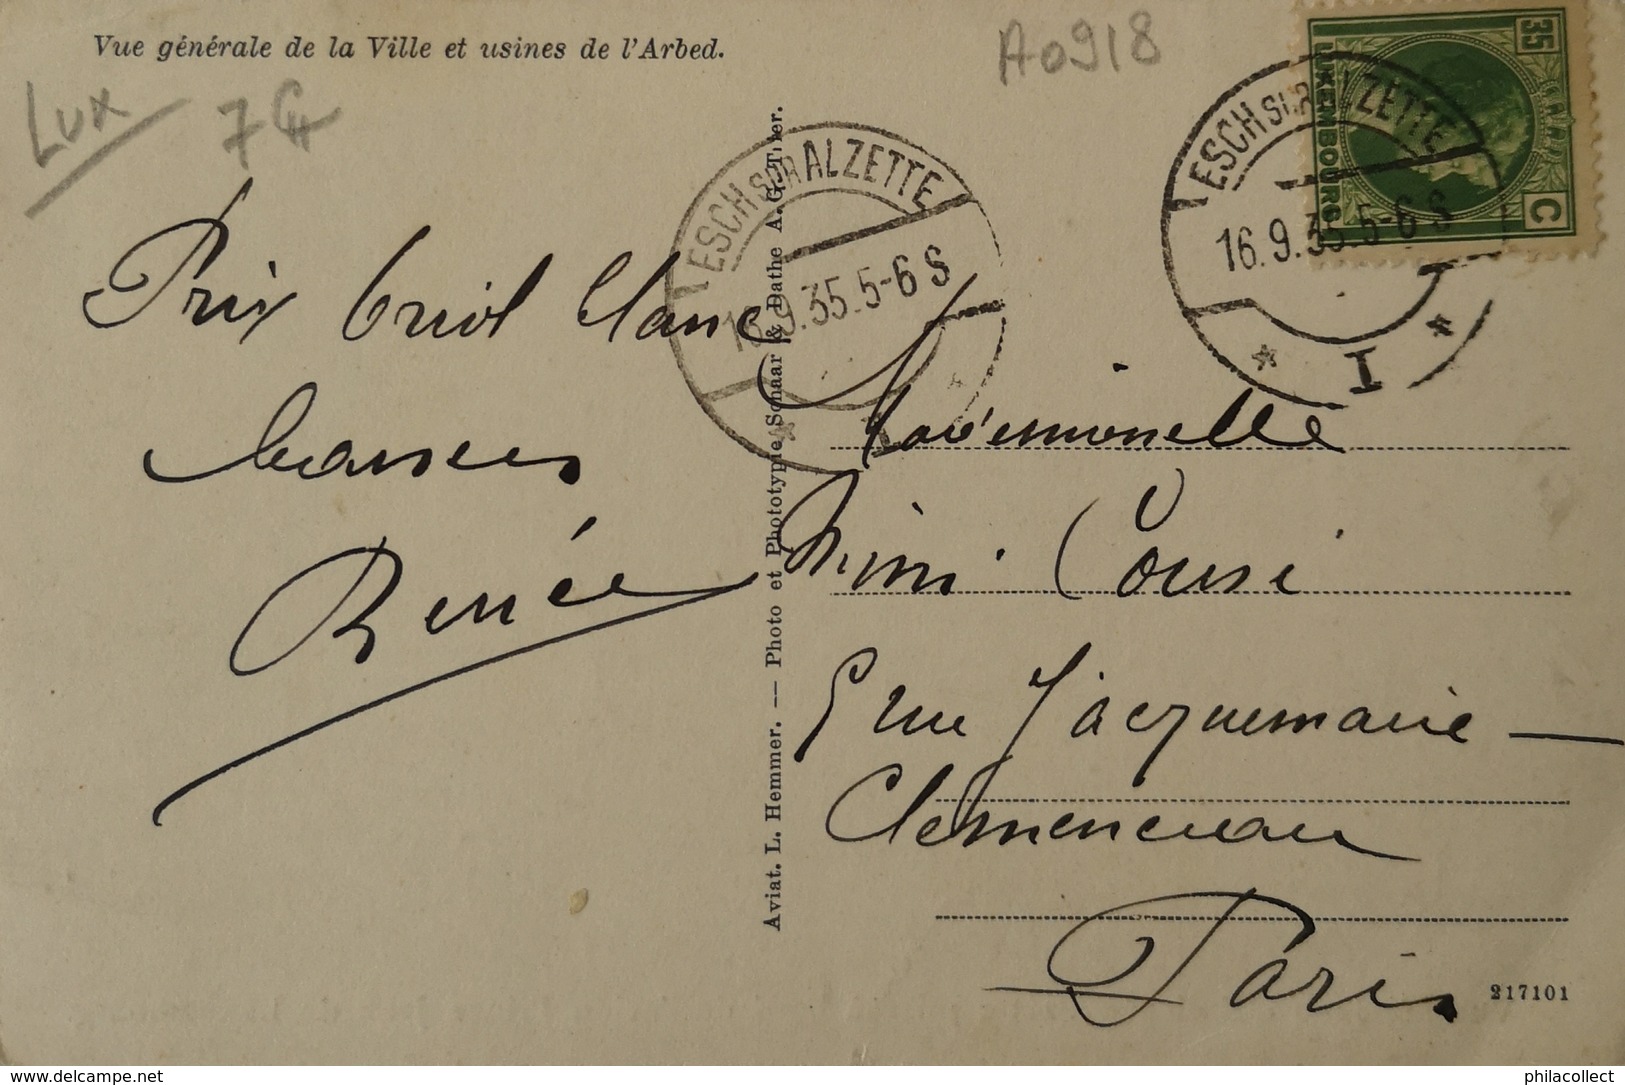 Vue générale de la Ville et usines de l'Arbed.
A0918
Lux
35
LUXEMBOURG
C
ESCH S. ALZETTE
16.9.35.5-6 S
I
ESCH S. ALZETTE
16.9.35.5-6 S
Prix
baisers
Renée
Aviat. L. Hemmer. — Photo et Phototypie Schaar & Dathe A. G. Trier.
Mademoiselle
Mimi
rue Jacquemaire —
Clemenceau
Paris
217101
philacollect